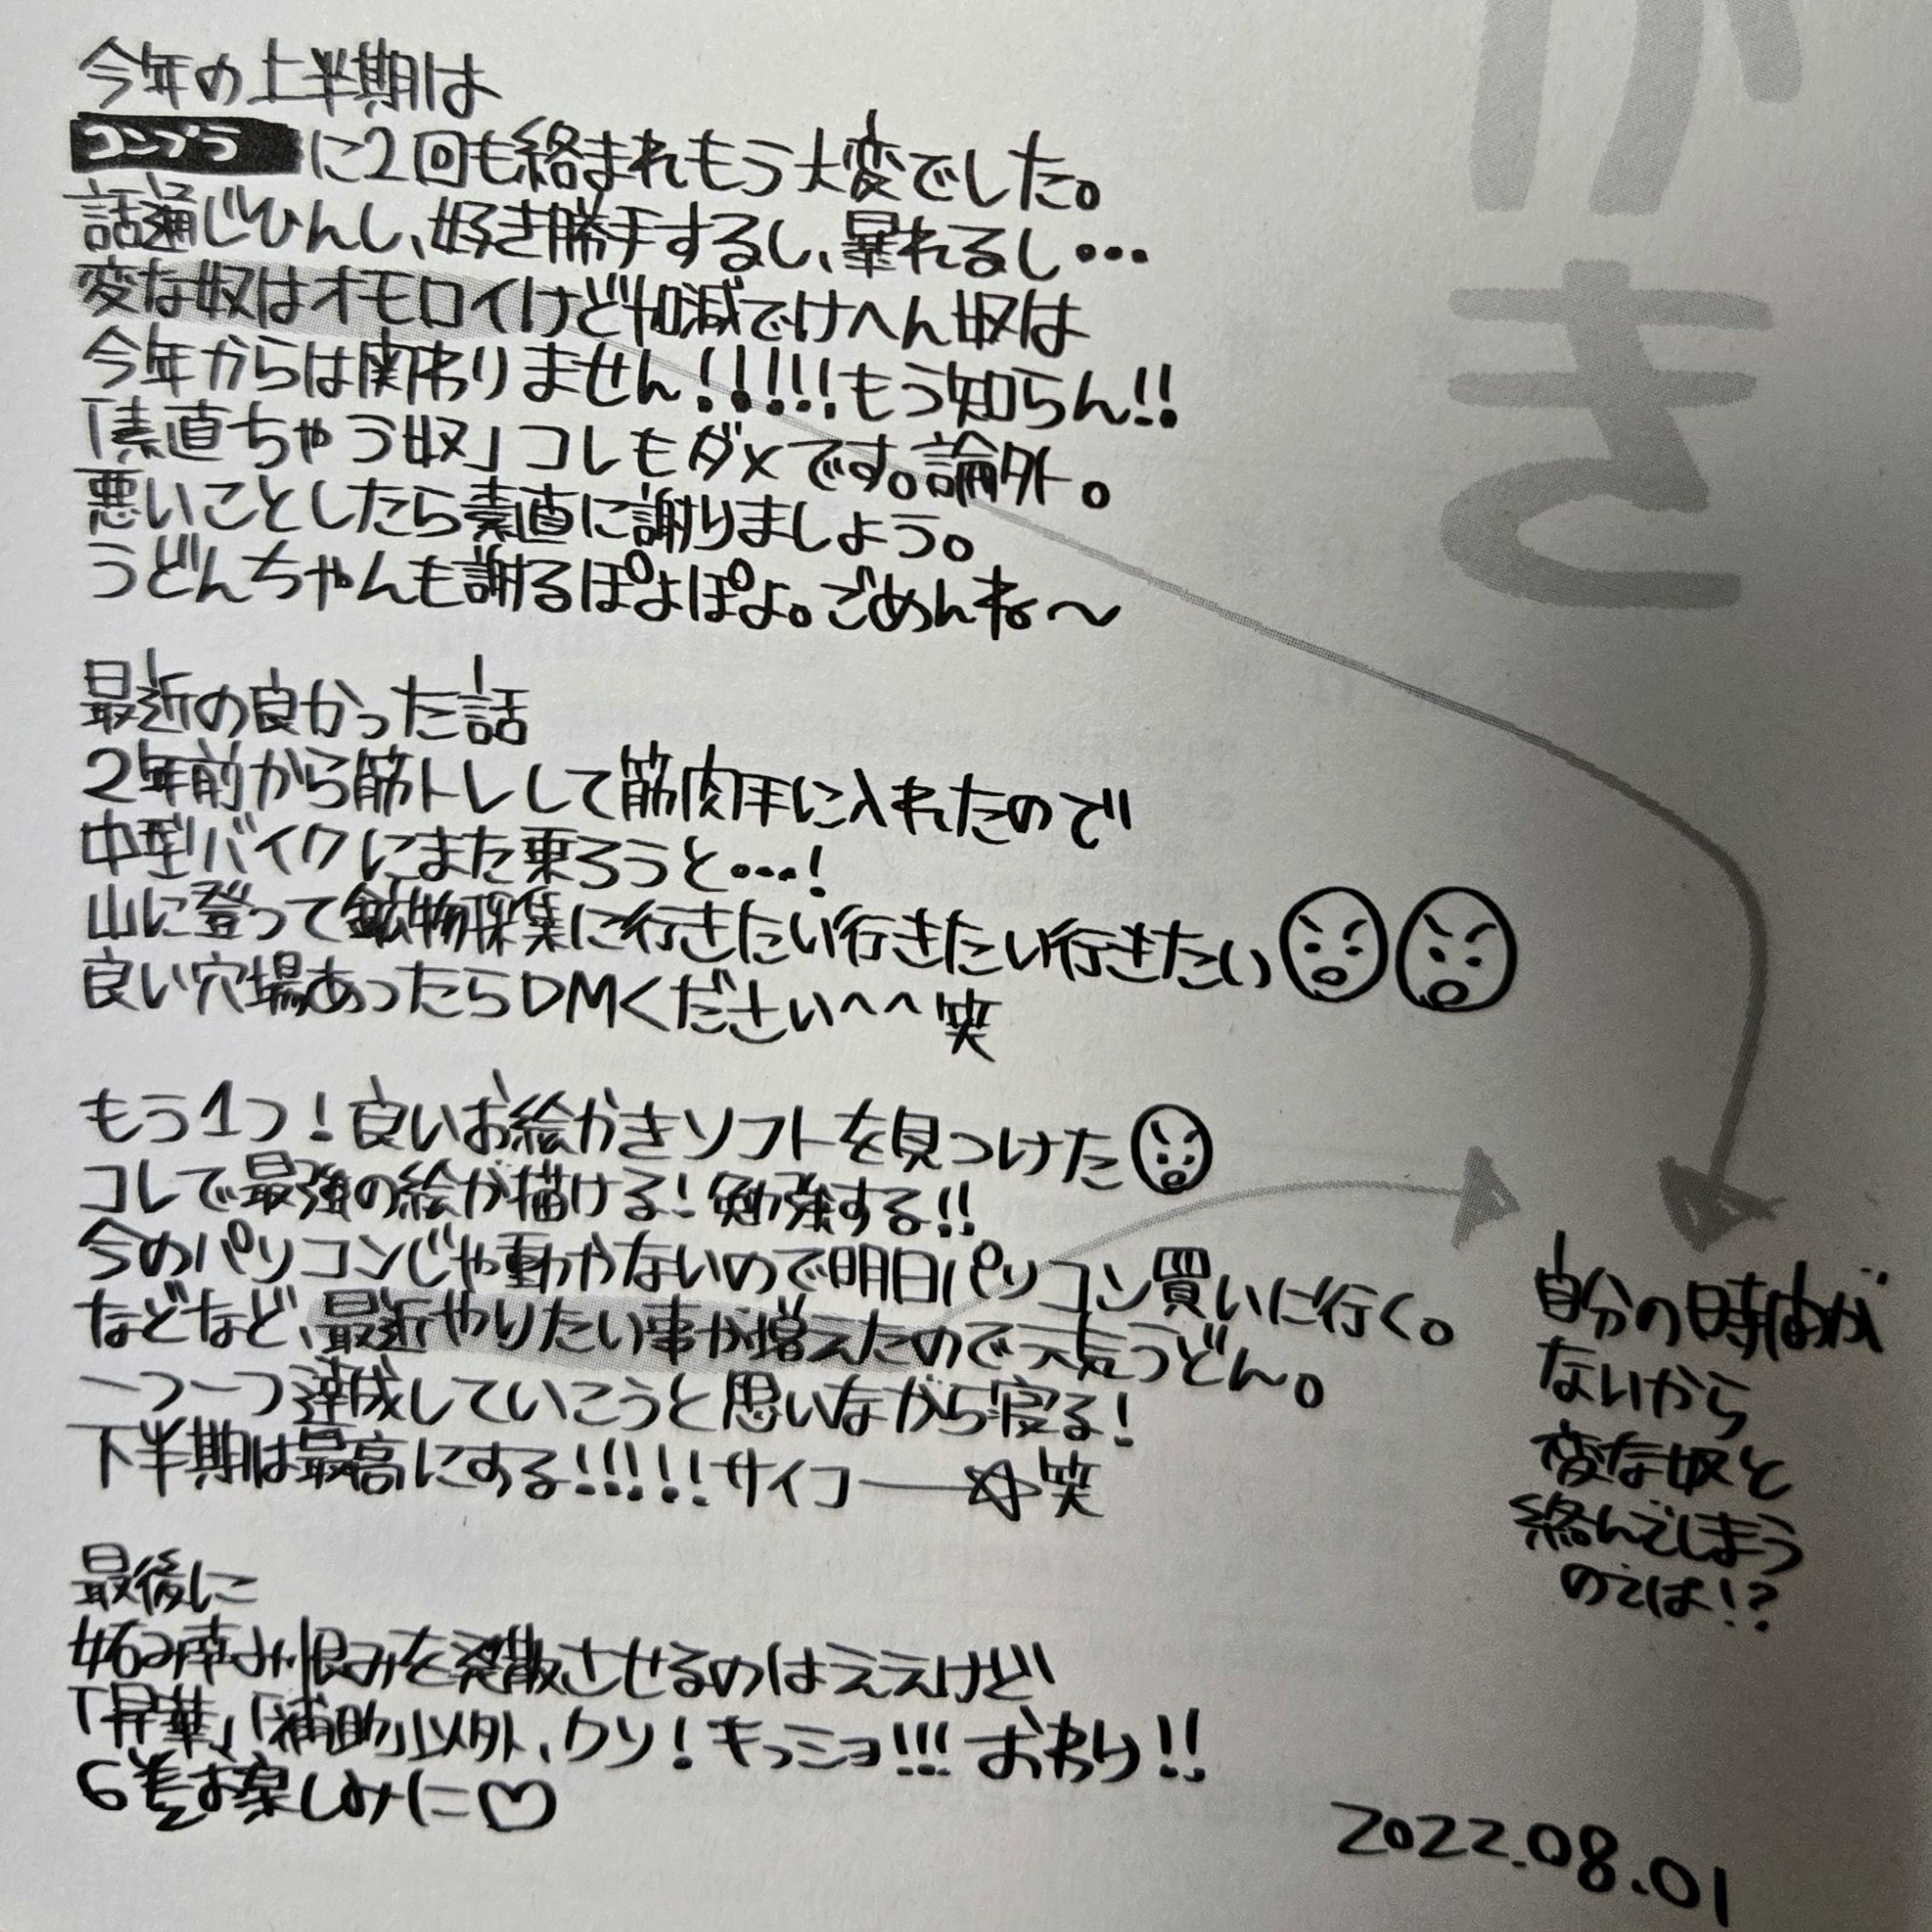 がき
今年の上半期は
コンプラに2回も絡まれもう大変でした。
話通じひんし、好き勝手するし、暴れるし…
変な奴はオモロイけど加減でけへん奴は
今年からは関わりません!!!!!もう知らん!!
「素直ちゃう奴」コレもダメです。論外。
悪いことしたら素直に謝りましょう。
うどんちゃんも謝るぽよぽよ。ごめんね〜
最近の良かった話
2年前から筋トレして筋肉手に入れたので
中型バイクにまた乗ろうと…!
山に登って鉱物採集に行きたい行きたい行きたい
良い穴場あったらDMください^^笑
もう1つ!良いお絵かきソフトを見つけた
コレで最強の絵が描ける!勉強する!!
今のパソコンじゃ動かないので明日パソコン買いに行く。
などなど、最近やりたい事が増えたので元気うどん。
一つ一つ達成していこうと思いながら寝る!
下半期は最高にする!!!!!サイコー☆笑
自分の時間が
ないから
変な奴と
絡んでしまう
のでは!?
最後に
妬み嫉み恨みを発散させるのはええけど
「昇華」「補助」以外、クソ!キっショ!!!おわり!!
6巻お楽しみに♡
2022.08.01